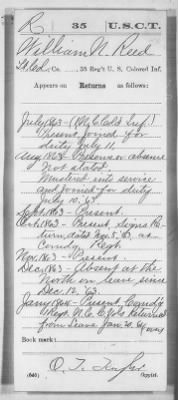 R 35 U.S.C.T.
William N. Reed
Col, Co. , 35 Reg't U. S. Colored Inf.
Appears on
Returns as follows:
July 1863 (1 N.C. Col'd Inf.)
Present Joined for
duty July 11.
Aug 1863 Presence or absence
Not stated
Mustered into service
and joined for duty
July 10, 63.
Sept 1863 - Present.
Oct 1863 - Present, Signs Re-
turn, dated Nov 5, 63, as
Comdg Regt
Nov. 1863 - Present.
Dec. 1863 - Absent at the
North on leave since
Dec. 12, 63.
Jany 1864 - Present, Comdg
Regt. N.C.C. Vols Returned
from leave Jan 20, 64
Book mark:
(646) Copyist.